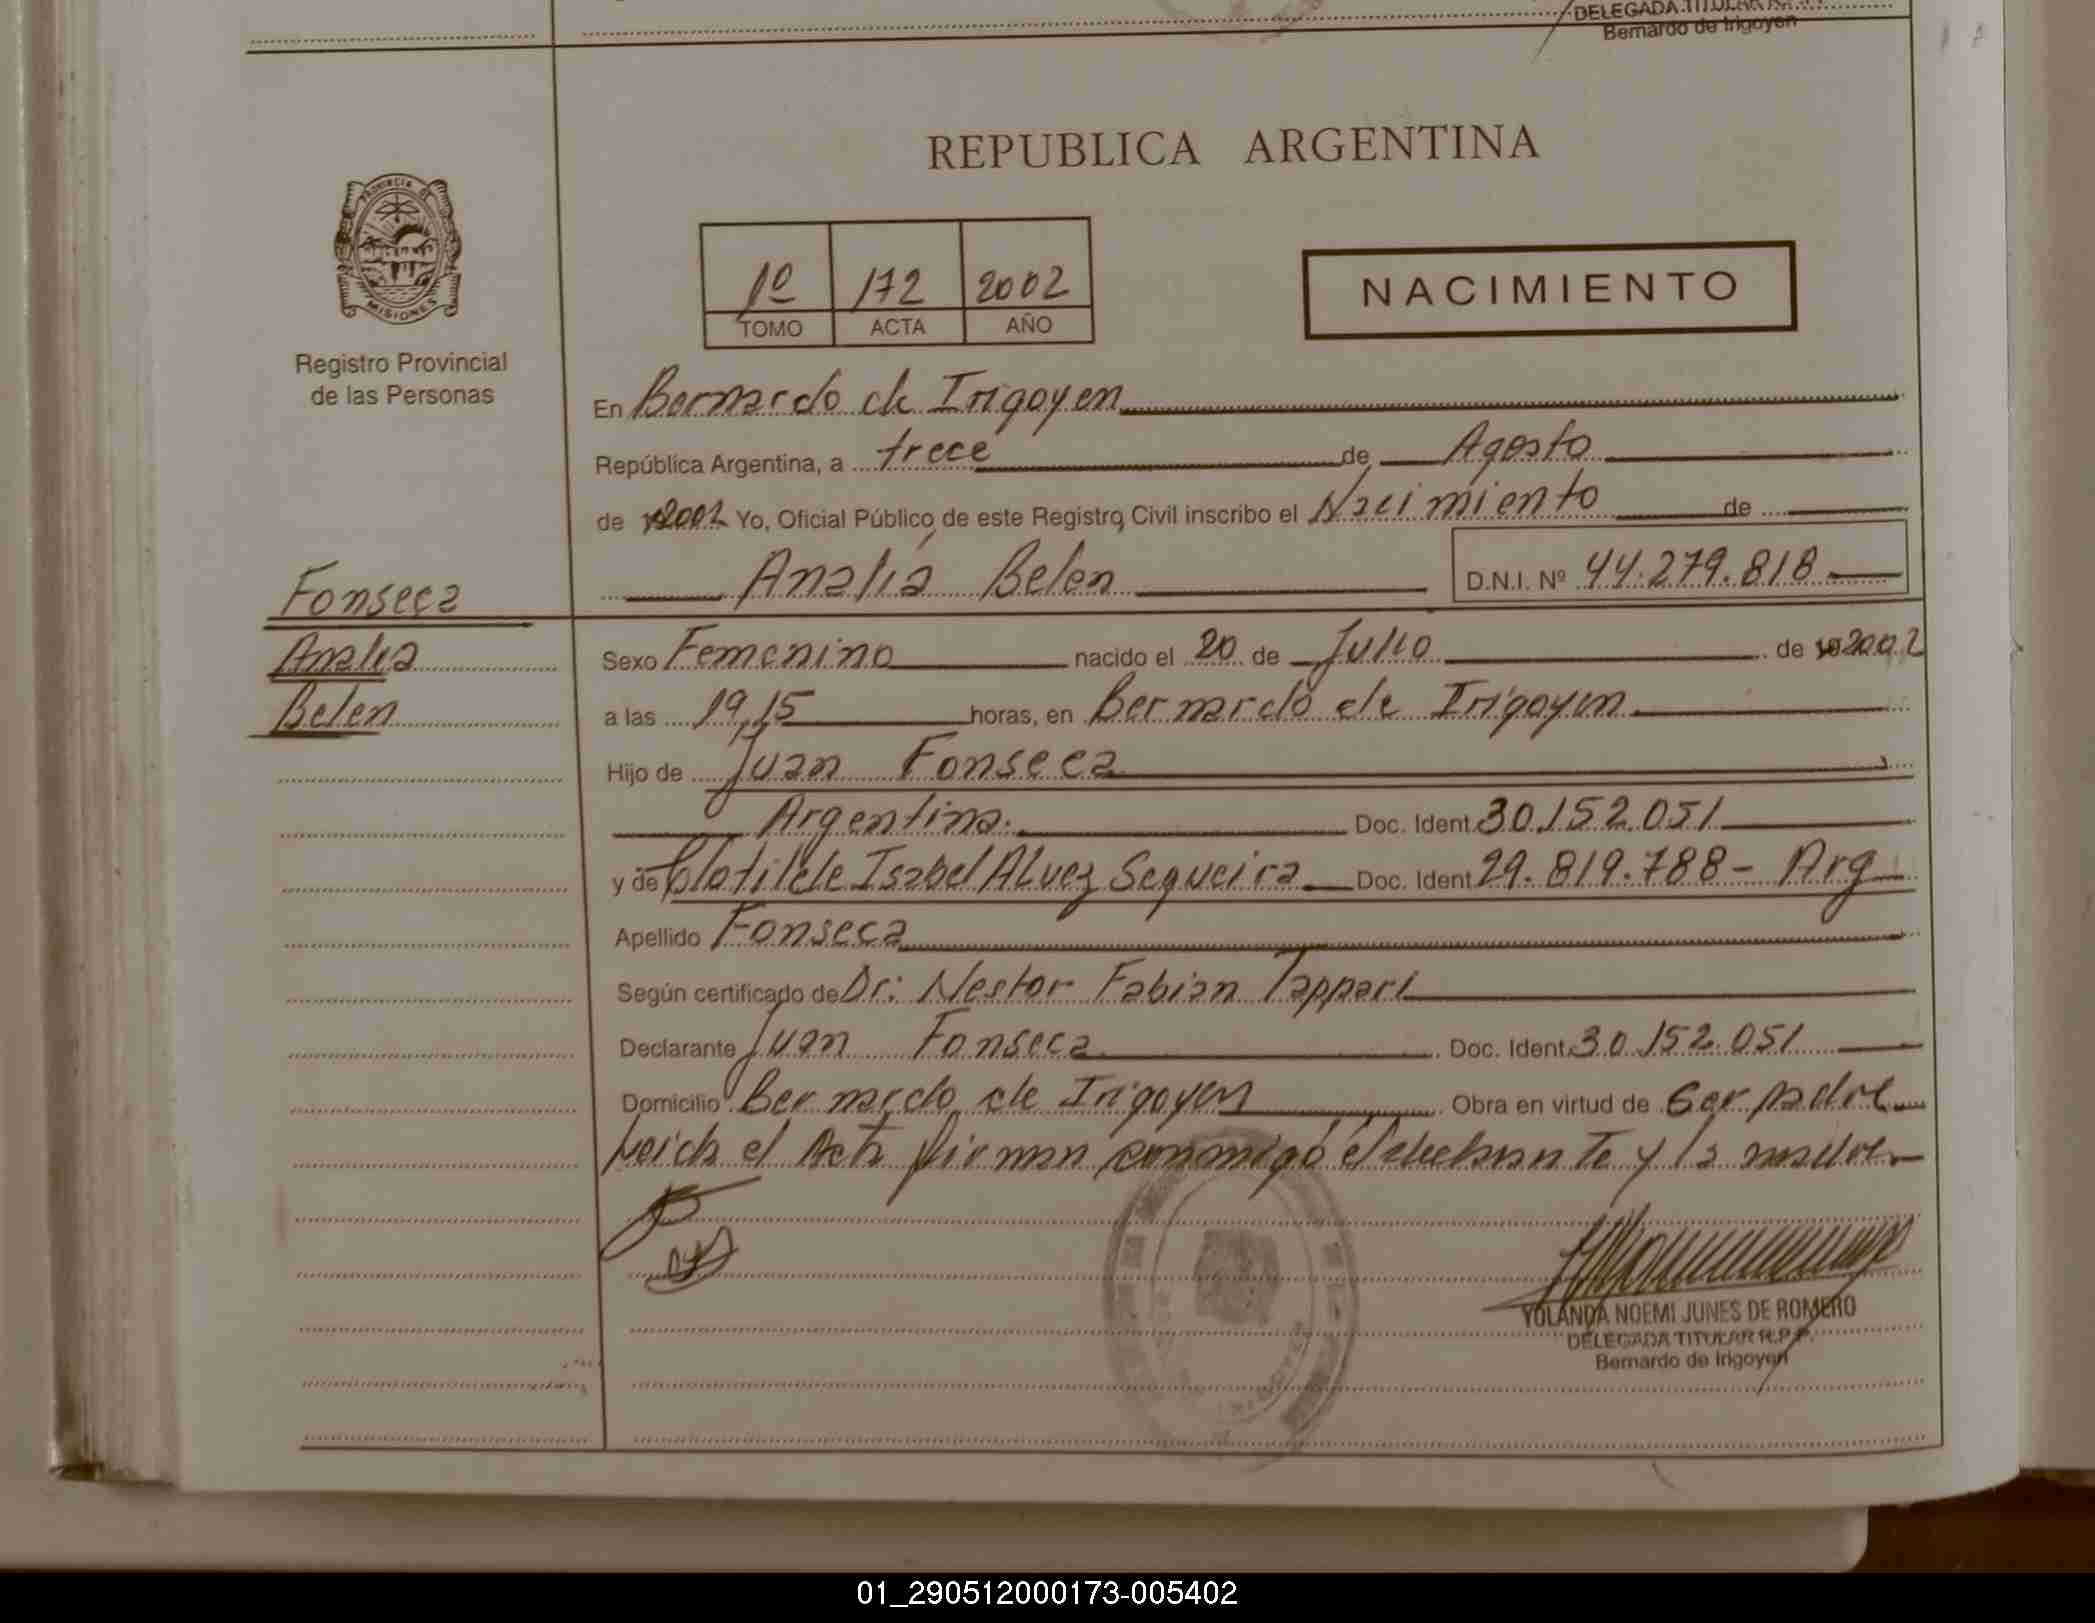 DELEGADA TITULAR R.P.P.
Bernardo de Irigoyen
REPUBLICA ARGENTINA
PROVINCIA DE
MISIONES
Registro Provincial
de las Personas
1º 172 2002
TOMO ACTA AÑO
NACIMIENTO
En Bernardo de Irigoyen
República Argentina, a trece de Agosto
de 2002 Yo, Oficial Público de este Registro Civil inscribo el Nacimiento de
Analía Belen D.N.I. Nº 44.279.818
Fonseca
Analia
Belen
Sexo Femenino nacido el 20 de Julio de 2002
a las 19,15 horas, en Bernardo de Irigoyen
Hijo de Juan Fonseca
Argentina. Doc. Ident. 30.152.051
y de Clotilde Isabel Alvez Sequeira Doc. Ident. 29.819.788 - Arg
Apellido Fonseca
Según certificado de Dr: Nestor Fabian Tappari
Declarante Juan Fonseca Doc. Ident. 30.152.051
Domicilio Bernardo de Irigoyen Obra en virtud de Ser padre
Leida el Acta firman conmigo el declarante y la madre
YOLANDA NOEMI JUNES DE ROMERO
DELEGADA TITULAR R.P.P.
Bernardo de Irigoyen
01_290512000173-005402